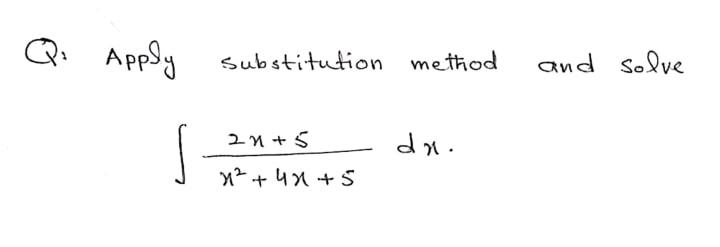 Q: Apply substitution method and solve
∫ (2x + 5)/(x² + 4x + 5) dx.